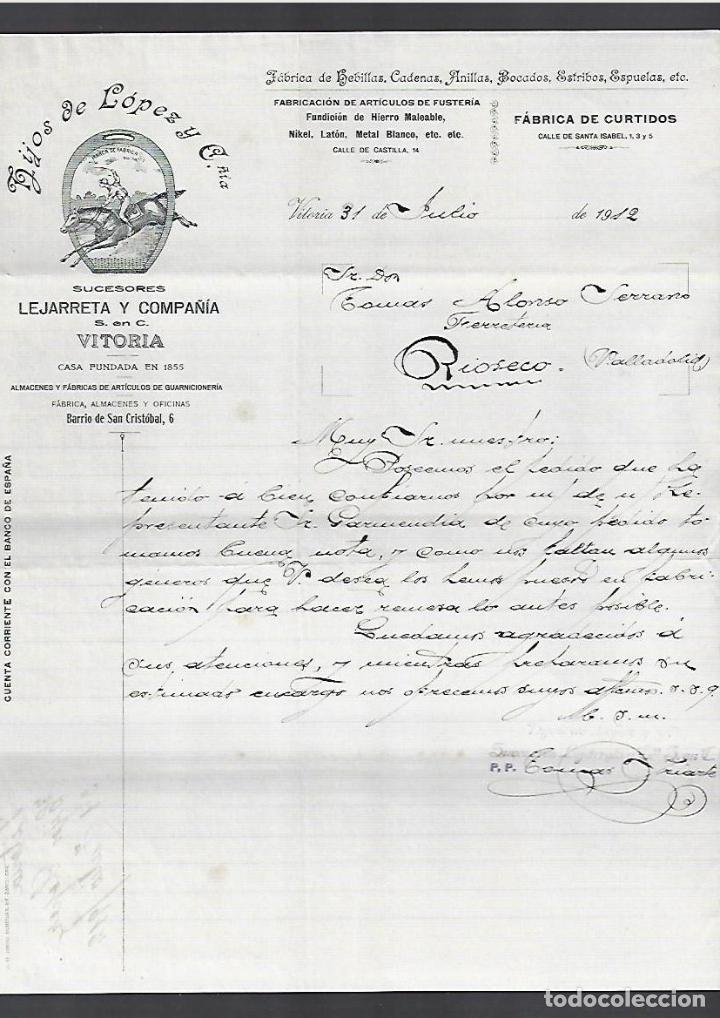 Hijos de López y C.ñía
MARCA DE FABRICA
SUCESORES
LEJARRETA Y COMPAÑÍA
S. en C.
VITORIA
CASA FUNDADA EN 1855
ALMACENES Y FÁBRICAS DE ARTÍCULOS DE GUARNICIONERÍA
FÁBRICA, ALMACENES Y OFICINAS
Barrio de San Cristóbal, 6
Fábrica de Hebillas, Cadenas, Anillas, Bocados, Estribos, Espuelas, etc.
FABRICACIÓN DE ARTÍCULOS DE FUSTERÍA
Fundición de Hierro Maleable,
Nikel, Latón, Metal Blanco, etc. etc.
CALLE DE CASTILLA, 14
FÁBRICA DE CURTIDOS
CALLE DE SANTA ISABEL, 1, 3 y 5
Vitoria 31 de Julio de 1912
Sr. Don
Tomás Alonso Serrano
Ferreteria
Rioseco. (Valladolid)
Muy Sr. nuestro:
Poseemos el pedido que ha
tenido á bien confiarnos por m/ de n/ Re-
presentante Sr. Garmendia de cuyo pedido to-
mamos buena nota, y como nos faltan algunos
géneros que V. desea los hemos puesto en fabri-
cación para hacer remesa lo antes posible.
Quedamos agradecidos á
sus atenciones, y mientras preparamos su
estimado encargo nos ofrecemos suyos affmos. s. s. q.
b. s. m.
P. P. Tomas Iriarte
CUENTA CORRIENTE CON EL BANCO DE ESPAÑA
todocoleccion